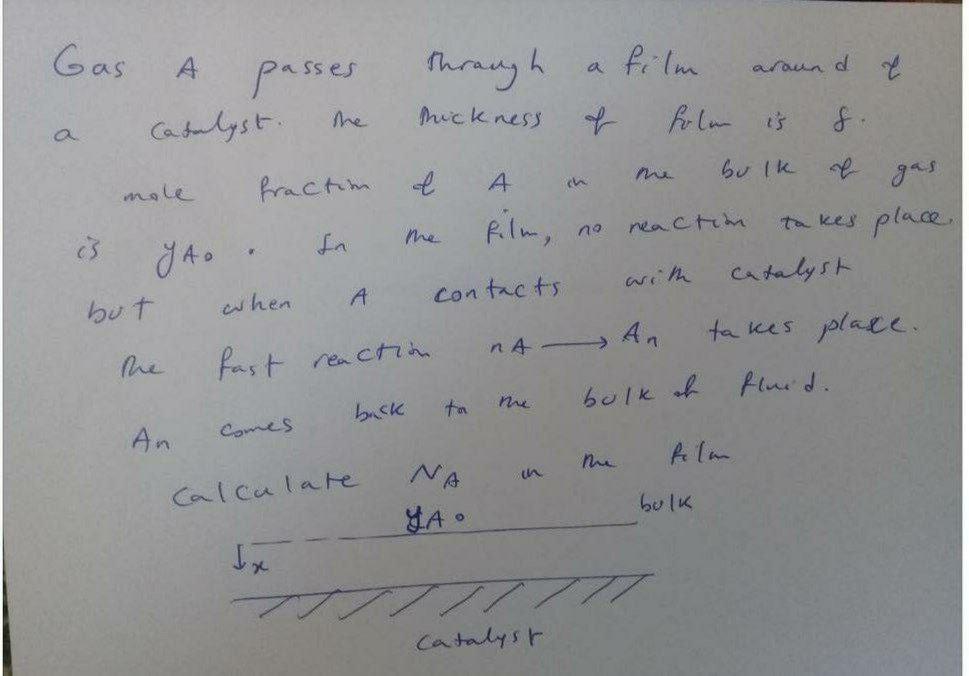 Gas A passes through a film around of
a catalyst. The thickness of film is δ.
mole fraction of A in the bulk of gas
is yA₀. In the film, no reaction takes place.
but when A contacts with catalyst
the fast reaction nA → An takes place.
An comes back to the bulk of fluid.
Calculate NA in the film
yA₀ bulk
↓x
catalyst